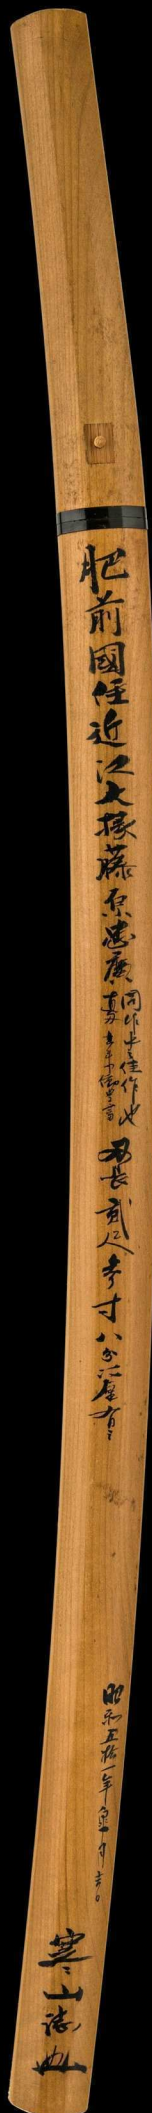 肥前國住近江大掾藤原忠廣
同作中之佳作也
刃長貳尺壱寸八分
有之
昭和五拾一年
寒山誌